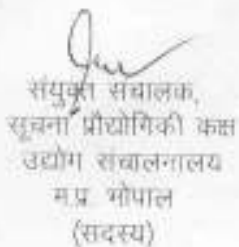 संयुक्त संचालक,
सूचना प्रौद्योगिकी कक्ष
उद्योग संचालनालय
म.प्र. भोपाल
(सदस्य)